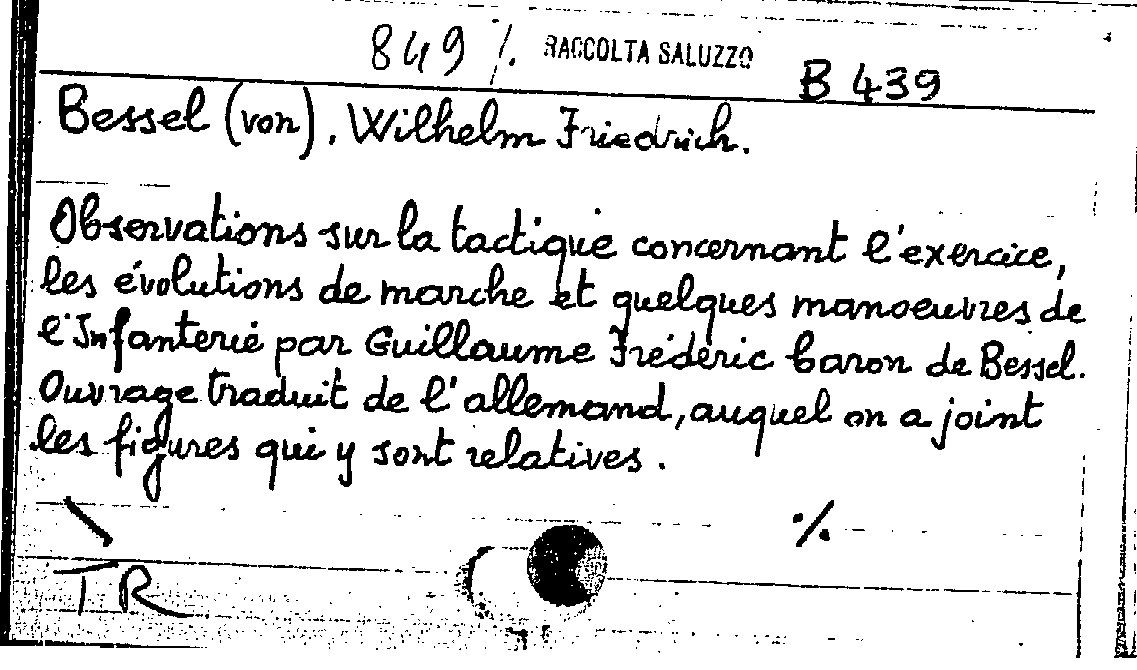 849 ./. RACCOLTA SALUZZO B 439
Bessel (von), Wilhelm Friedrich.
Observations sur la tactique concernant l'exercice,
les évolutions de marche et quelques manoeuvres de
l'Infanterie par Guillaume Fréderic baron de Bessel.
Ouvrage traduit de l'allemand, auquel on a joint
les figures qui y sont relatives.
./.
TR